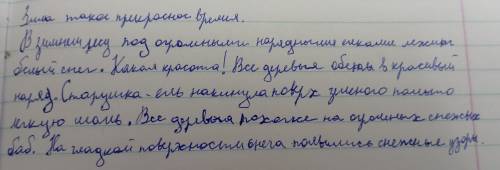 Зима такое прекрасное время.
В зимнем лесу под огромными нарядными елками лежит
белый снег. Какая красота! Все деревья обеты в красивый
наряд. Старушка-ель накинула поврх умного пальто
легкую шаль. Все деревья похожие на огромных снежных
баб. На гладкой поверхности снега появились снежные узоры.